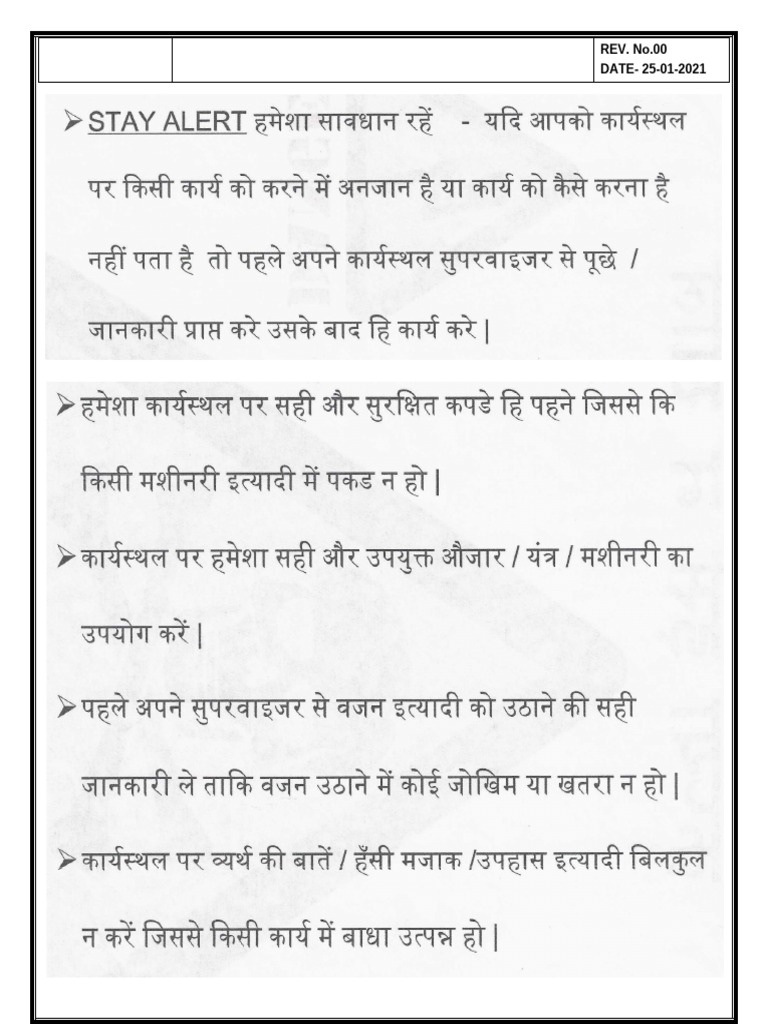 REV. No.00
DATE- 25-01-2021
➢ STAY ALERT हमेशा सावधान रहें - यदि आपको कार्यस्थल
पर किसी कार्य को करने में अनजान है या कार्य को कैसे करना है
नहीं पता है तो पहले अपने कार्यस्थल सुपरवाइजर से पूछे /
जानकारी प्राप्त करे उसके बाद हि कार्य करे |
➢ हमेशा कार्यस्थल पर सही और सुरक्षित कपडे हि पहने जिससे कि
किसी मशीनरी इत्यादी में पकड न हो |
➢ कार्यस्थल पर हमेशा सही और उपयुक्त औजार / यंत्र / मशीनरी का
उपयोग करें |
➢ पहले अपने सुपरवाइजर से वजन इत्यादी को उठाने की सही
जानकारी ले ताकि वजन उठाने में कोई जोखिम या खतरा न हो |
➢ कार्यस्थल पर व्यर्थ की बातें / हँसी मजाक /उपहास इत्यादी बिलकुल
न करें जिससे किसी कार्य में बाधा उत्पन्न हो |